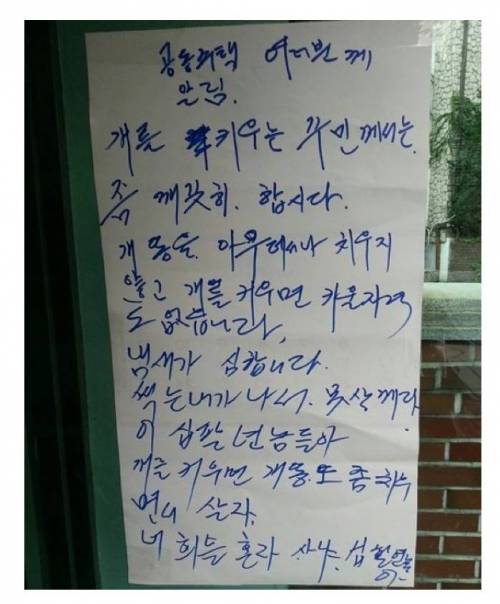 공동주택 여러분께
알림.
개를 키우는 주민께서는.
좀 깨끗히. 합시다.
개똥을. 아무데서나 치우지
않고 개를 키우면 키울자격
도 없습니다.
냄새가 심합니다.
썩는내가 나서. 못살께다
이 십팔년놈들아
개를 키우면 개똥.또 좀 치우
면서 살자.
너희들 혼라 사냐. 십팔연놈
아